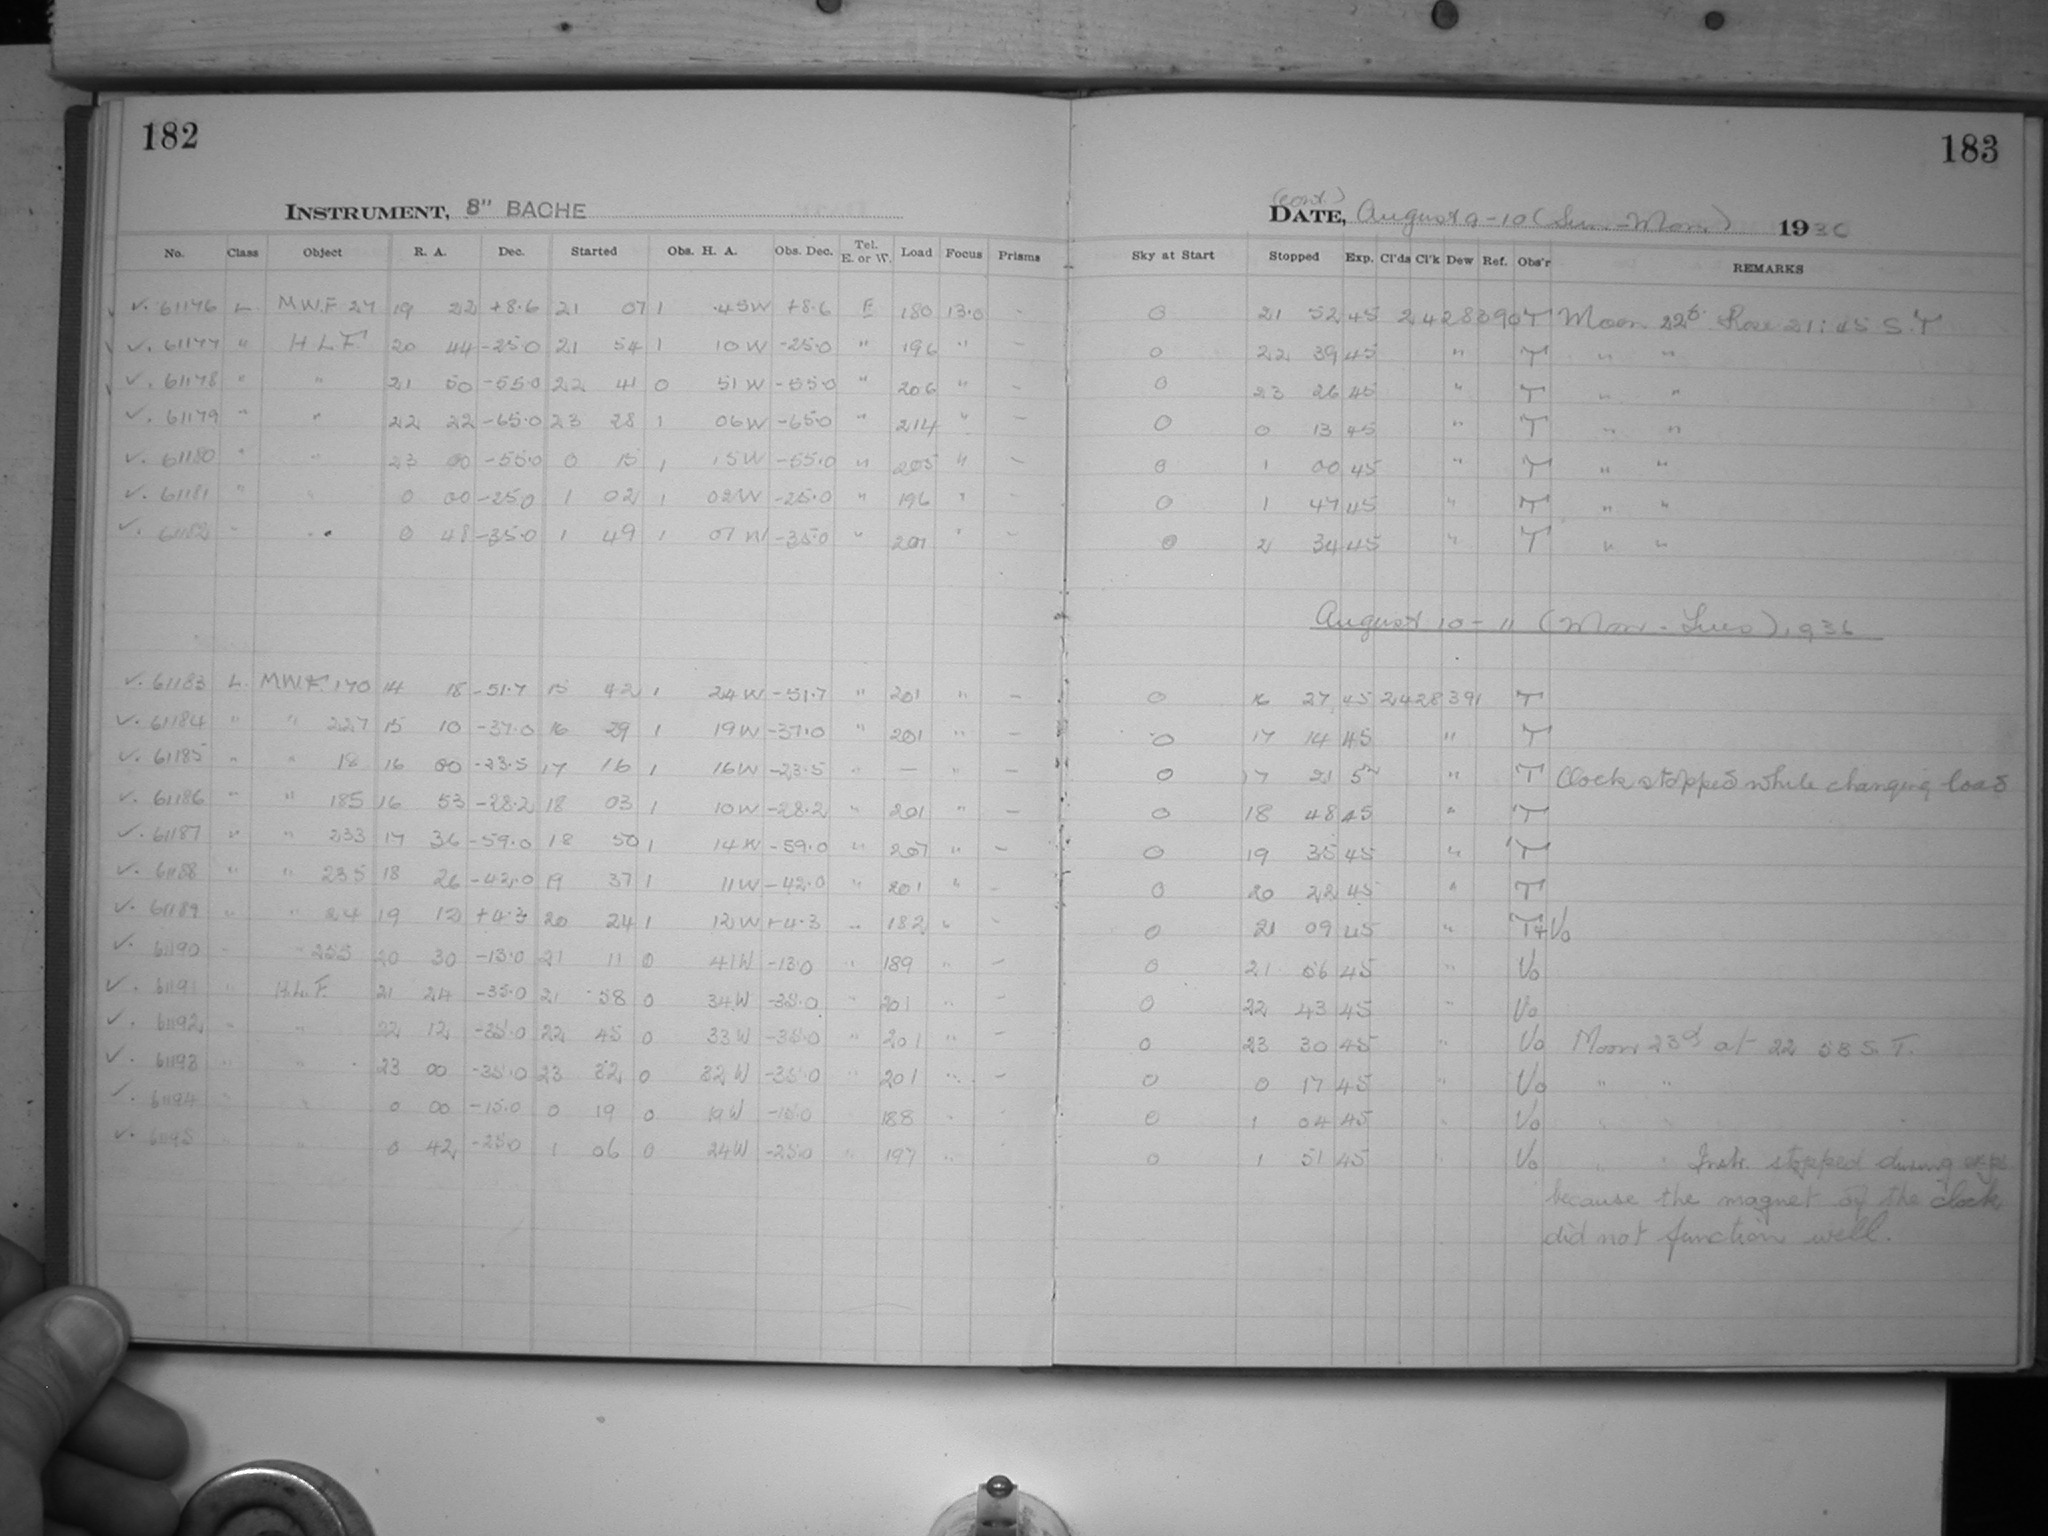 182
183
INSTRUMENT, 8" BACHE
(cont.)
DATE, August 9-10 (Sun.-Mon.) 1936
No. Class Object R. A. Dec. Started Obs. H. A. Obs. Dec. Tel. E. or W. Load Focus Prisms Sky at Start Stopped Exp. Cl'ds Cl'k Dew Ref. Obs'r REMARKS
✓. 61176 L. M.W.F. 27 19 22 +8.6 21 07 1 45W +8.6 E 180 13.0 - 0 21 52 45 2428390 T Moon 22d. Rose 21:45 S.T
✓. 61177 " H L F. 20 44 -25.0 21 54 1 10 W -25.0 " 196 " - 0 22 39 45 " T " "
✓. 61178 " " 21 50 -55.0 22 41 0 51 W -55.0 " 206 " - 0 23 26 45 " T " "
✓. 61179 " " 22 22 -65.0 23 28 1 06 W -65.0 " 214 " - 0 0 13 45 " T " "
✓. 61180 " " 23 00 -55.0 0 15 1 15 W -55.0 " 205 " - 0 1 00 45 " T " "
✓. 61181 " " 0 00 -25.0 1 02 1 02 W -25.0 " 196 " - 0 1 47 45 " T " "
✓. 61182 " " 0 48 -35.0 1 49 1 01 W -35.0 " 201 " - 0 2 34 45 " T " "
August 10-11 (Mon-Tues), 1936
✓. 61183 L. M.W.F. 170 14 18 -51.7 15 42 1 24 W -51.7 " 201 " - 0 16 27 45 2428391 T
✓. 61184 " " 227 15 10 -37.0 16 29 1 19 W -37.0 " 201 " - 0 17 14 45 " T
✓. 61185 " " 18 16 00 -23.5 17 16 1 16 W -23.5 " - " - 0 17 21 5m " T Clock stopped while changing load
✓. 61186 " " 185 16 53 -28.2 18 03 1 10 W -28.2 " 201 " - 0 18 48 45 " T
✓. 61187 " " 233 17 36 -59.0 18 50 1 14 W -59.0 " 207 " - 0 19 35 45 " T
✓. 61188 " " 235 18 26 -42.0 19 37 1 11 W -42.0 " 201 " - 0 20 22 45 " T
✓. 61189 " " 24 19 12 +4.3 20 24 1 12 W +4.3 " 182 " - 0 21 09 45 " T+Vo
✓. 61190 " " 255 20 30 -13.0 21 11 0 41 W -13.0 " 189 " - 0 21 56 45 " Vo
✓. 61191 " H.L.F. 21 24 -35.0 21 58 0 34 W -35.0 " 201 " - 0 22 43 45 " Vo
✓. 61192 " " 22 12 -35.0 22 45 0 33 W -35.0 " 201 " - 0 23 30 45 " Vo Moon 23d at 22 58 S.T.
✓. 61193 " " 23 00 -35.0 23 32 0 32 W -35.0 " 201 " - 0 0 17 45 " Vo " "
✓. 61194 " " 0 00 -15.0 0 19 0 19 W -15.0 188 " - 0 1 04 45 " Vo " "
✓. 61195 " " 0 42 -25.0 1 06 0 24 W -25.0 " 197 " 0 1 51 45 " Vo " " Instr. stopped during exp.
because the magnet of the clock
did not function well.